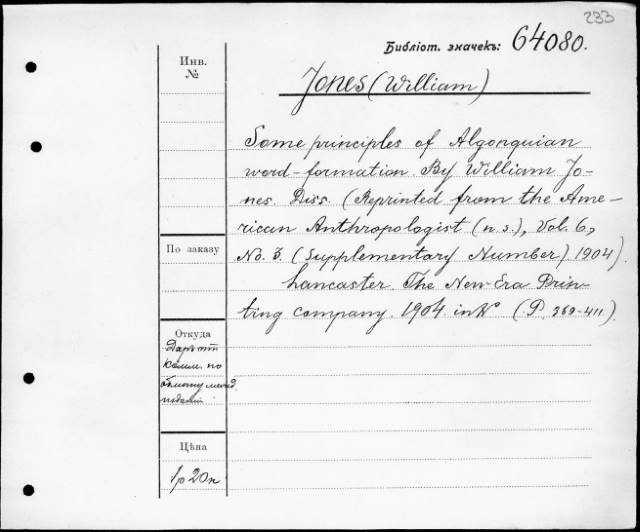 233
Библіот. значекъ: 64080.
Инв.
№
Jones (William)
Some principles of Algonquian
word-formation. By William Jo-
nes. Diss. (Reprinted from the Ame-
rican Anthropologist (n. s.), Vol. 6,
No. 3. (Supplementary Number). 1904)
Lancaster. The New Era Prin-
ting company. 1904. in 8° (P. 369-411).
По заказу
Откуда
Даръ отъ
комм. по
обмѣну межд.
изданій
Цѣна
1р 20к